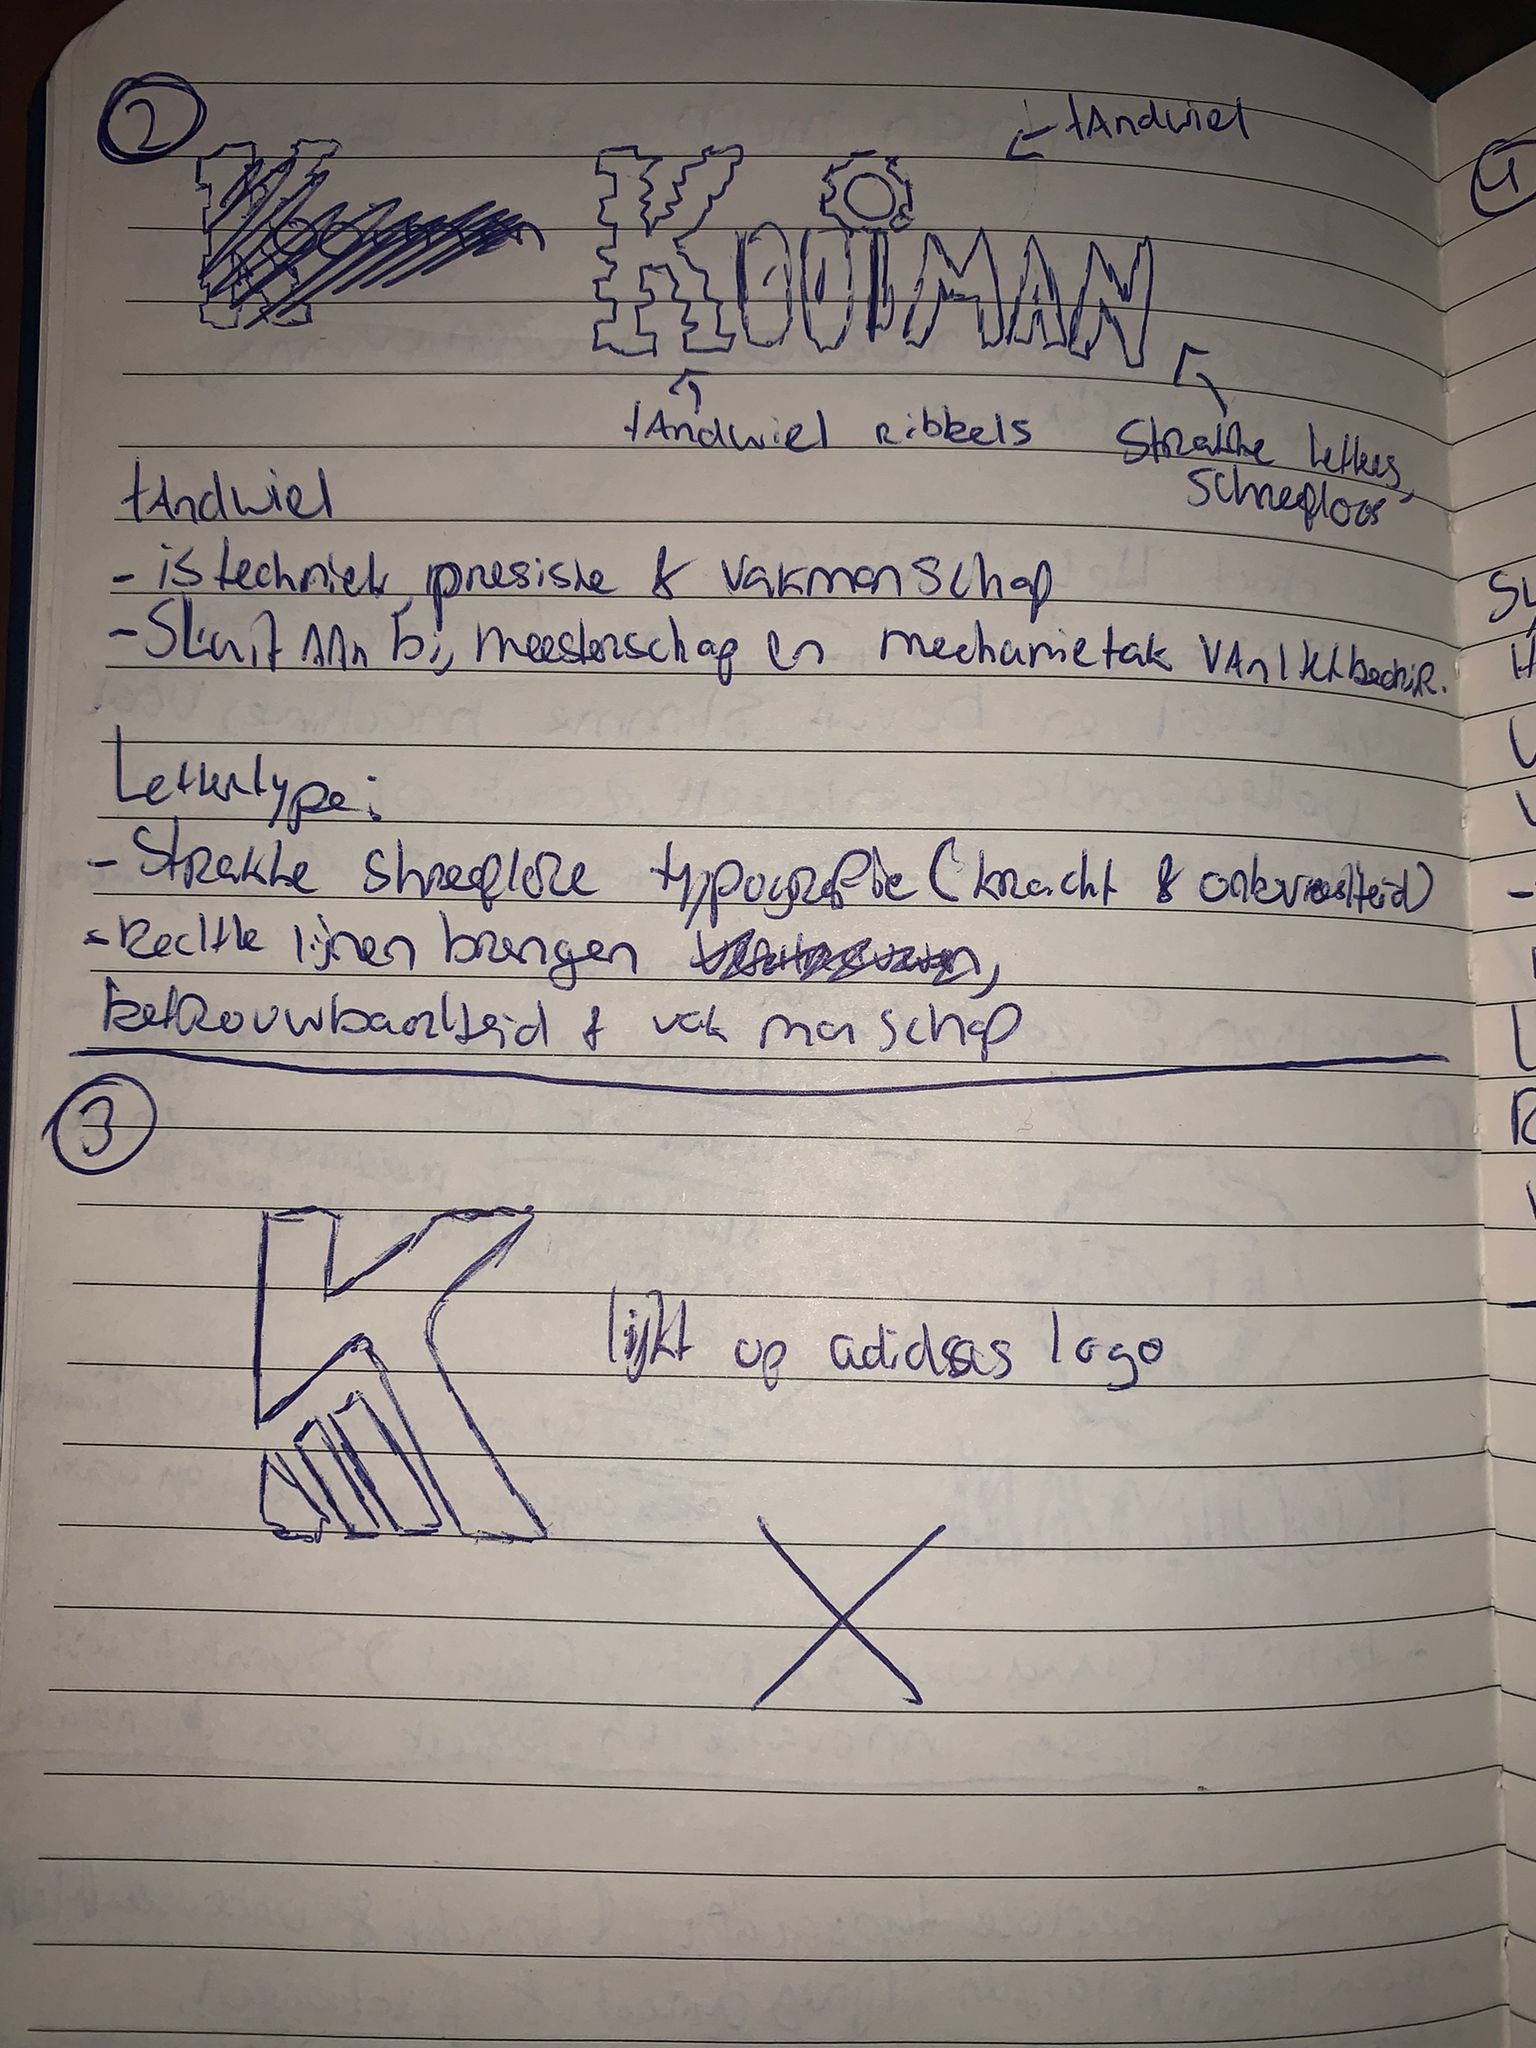 2
Kooiman
KOOIMAN
tAndwiel
tAndwiel ribbels
Strakke letters,
Schreefloos
tAndwiel
- is techniek, presisie & vakmanschap
- Sluit AAn bij meesterschap en mechanietak VAn het bedrijf.
Lettertype:
- Strakke shreeflose typografie (kracht &
- Rechte lijnen brengen
betrouwbaarheid & vakmanschap
3
K
lijkt op adidsas logo
4